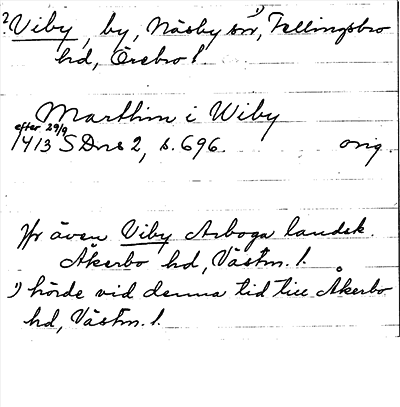 ? Viby, by, Näsby sn¹⁾, Fellingsbro
hd, Örebro l.
Marthin i Wiby
efter 29/9
1413 SDns 2, s. 696. orig.
Jfr även Viby Arboga landsk.
Åkerbo hd, Västm. l.
¹⁾ hörde vid denna tid till Åkerbo
hd, Västm. l.